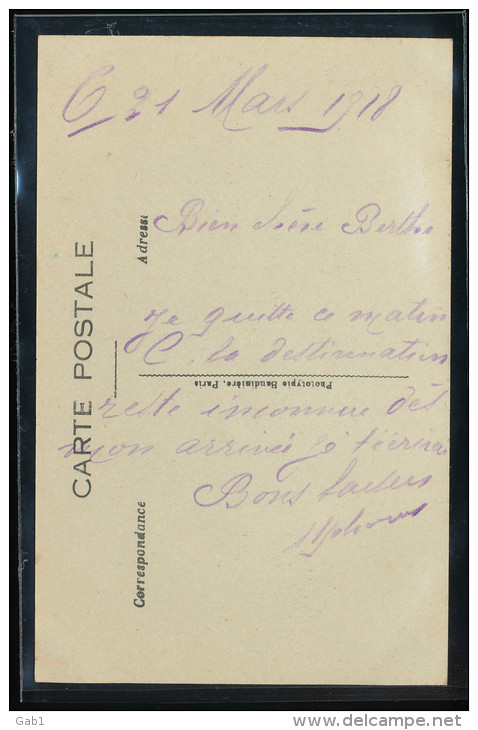 C 21 Mars 1918
Bien chère Berthe
je quitte ce matin
C. la destination
reste inconnue dès
mon arrivée je t'écrirai
Bons baisers
Alphonse
CARTE POSTALE
Correspondance
Adresse
Phototypie Baudinière, Paris
Gab1
http://www.delcampe.net